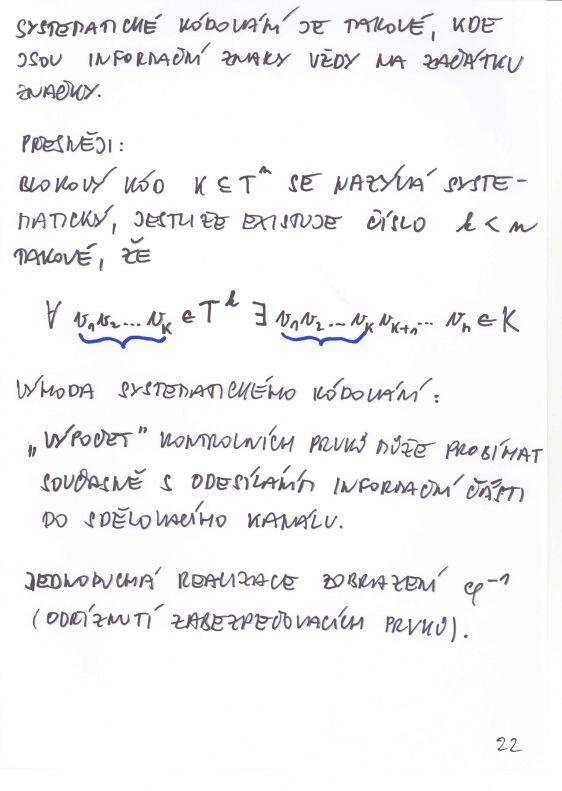 SYSTEMATICKÉ KÓDOVÁNÍ JE TAKOVÉ, KDE
JSOU INFORMAČNÍ ZNAKY VŽDY NA ZAČÁTKU
ZNAČKY.
PŘESNĚJI:
BLOKOVÝ KÓD K ⊆ Tⁿ SE NAZÝVÁ SYSTE-
MATICKÝ, JESTLIŽE EXISTUJE ČÍSLO k < n
TAKOVÉ, ŽE
∀ v₁v₂...v_K ∈ T^k ∃ v₁v₂...v_K v_{K+1}... v_n ∈ K
VÝHODA SYSTEMATICKÉHO KÓDOVÁNÍ:
„VÝPOČET" KONTROLNÍCH PRVKŮ MŮŽE PROBÍHAT
SOUČASNĚ S ODESÍLÁNÍM INFORMAČNÍ ČÁSTI
DO SDĚLOVACÍHO KANÁLU.
JEDNODUCHÁ REALIZACE ZOBRAZENÍ φ⁻¹
(ODŘÍZNUTÍ ZABEZPEČOVACÍCH PRVKŮ).
22